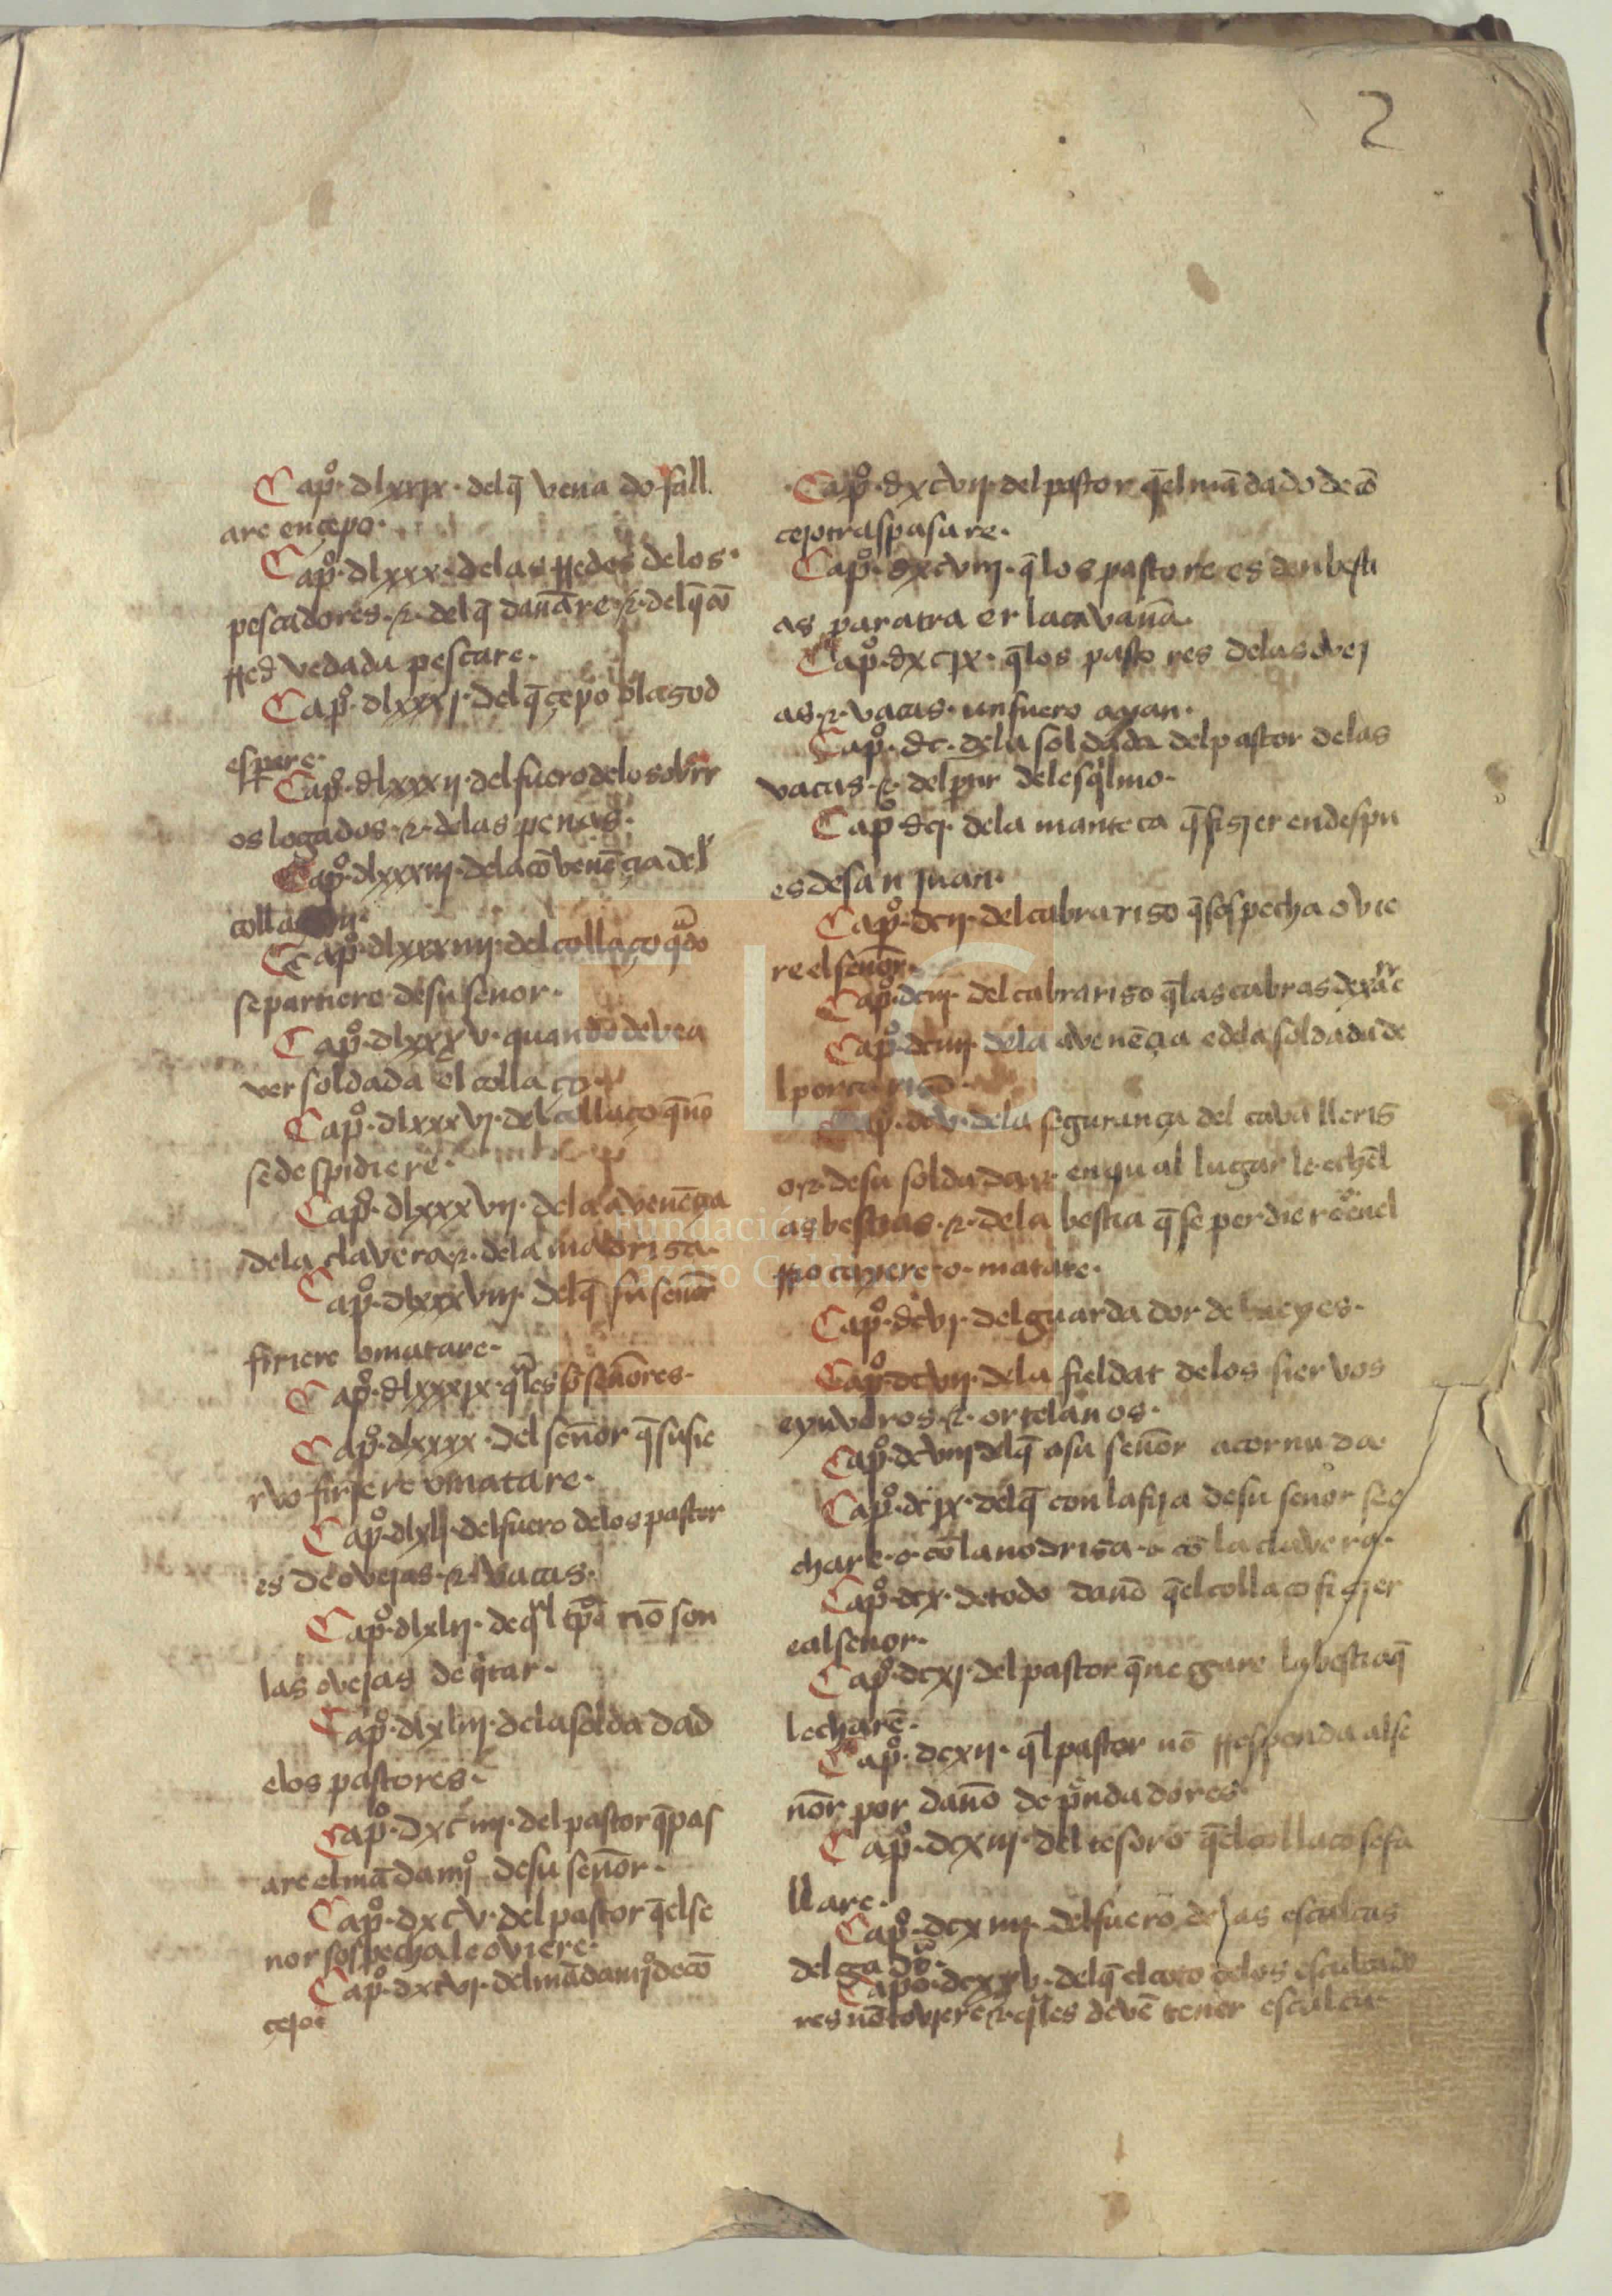 2
Capº. dlxxix. del q̄ vena do fall
are en çepo.
Capº. dlxxx. delas rredes delos
pescadores. ⁊. del q̄ danāre. ⁊. del q̄ cō
rred vedada pescare.
Capº. dlxxxj. del q̄ çepo
espare.
Capº. dlxxxij. del fuero delos obrr
os logados. ⁊. delas penas.
Capº. dlxxxiij. dela cōvenēçia del
Capº. dlxxxiiij. del collaço
se partiere de su senor.
Capº. dlxxxv. quando deve a
ver soldada el collaço.
Capº. dlxxxvj. del collaço q̄ nō
se despidiere.
Capº. dlxxxvij. dela avenēçia
dela clavera. ⁊. dela nadriga.
Capº. dlxxxviij. del q̄ su senōr
firiere omatare.
Capº. dlxxxix. senōres.
Capº. dlxxxx. del senōr q̄ su sie
rvo firiere omatare.
Capº. dlxlj. del fuero delos pastor
es de ovejas. ⁊. vacas.
Capº. dlxlij. de nō son
las ovejas de
Capº. dlxliij. dela solda dad
elos pastores.
Capº. dxciiij. del pastor q̄ pas
are el mādamjº de su senōr.
Capº. dxcv. del pastor q̄ el se
nor sospecha le oviere.
Capº. dxcvj. del mādamjº de cō
cejo.
Capº. dxcvij. del pastor q̄ el mā dado de cō
cejo traspasa re.
Capº. dxcviij. q̄ los pasto re es den besti
as para tra er la cavanā.
Capº. dxcix. q̄ los pasto res delas ovej
as. ⁊. vacas. un fuero ayan.
Capº. dc. dela soldada del pastor delas
vacas. ⁊. del
Capº dcj. dela manteca q̄ fizieren despu
es de san juan.
Capº. dcij. del cabrarizo q̄ sospecha ovie
re el senōr.
Capº. dciij. del cabrarizo q̄ las cabras
Capº. dciiij. dela avenēçia e dela soldada de
l
Capº. dcv. dela segurança del cavalleriz
o. ⁊. de su soldada. ⁊. en qual lugar le echēl
as bestias. ⁊. dela bestia q̄ se perdie
o. matare.
Capº. dcvj. del guarda dor de bueyes.
Capº. dcvij. dela fieldat delos sier vos
eynveros. ⁊. ortelanos.
Capº. dcviij del q̄ a su senōr
Capº. dcix. del q̄ con la fija de su senor se e
chare. o. cō la nodriza. o cō la clavera.
Capº. dcx. de todo danō q̄ el collaço fizier
e al senor.
Capº. dcxj. del pastor q̄ negare la bestia q̄
le charē.
Capº. dcxij. q̄l pastor nō rresponda al se
nōr por danō de
Capº. dcxiij. del tesoro q̄ el collaço se fa
llare.
Capº. dcxiiij. del fuero de las esculcas
del
Capº. dcxxv. del q̄ el coto delos esculcado
res nō tovjere. ⁊. devē tener esculca.
Fundación
Lázaro Galdiano
FLG